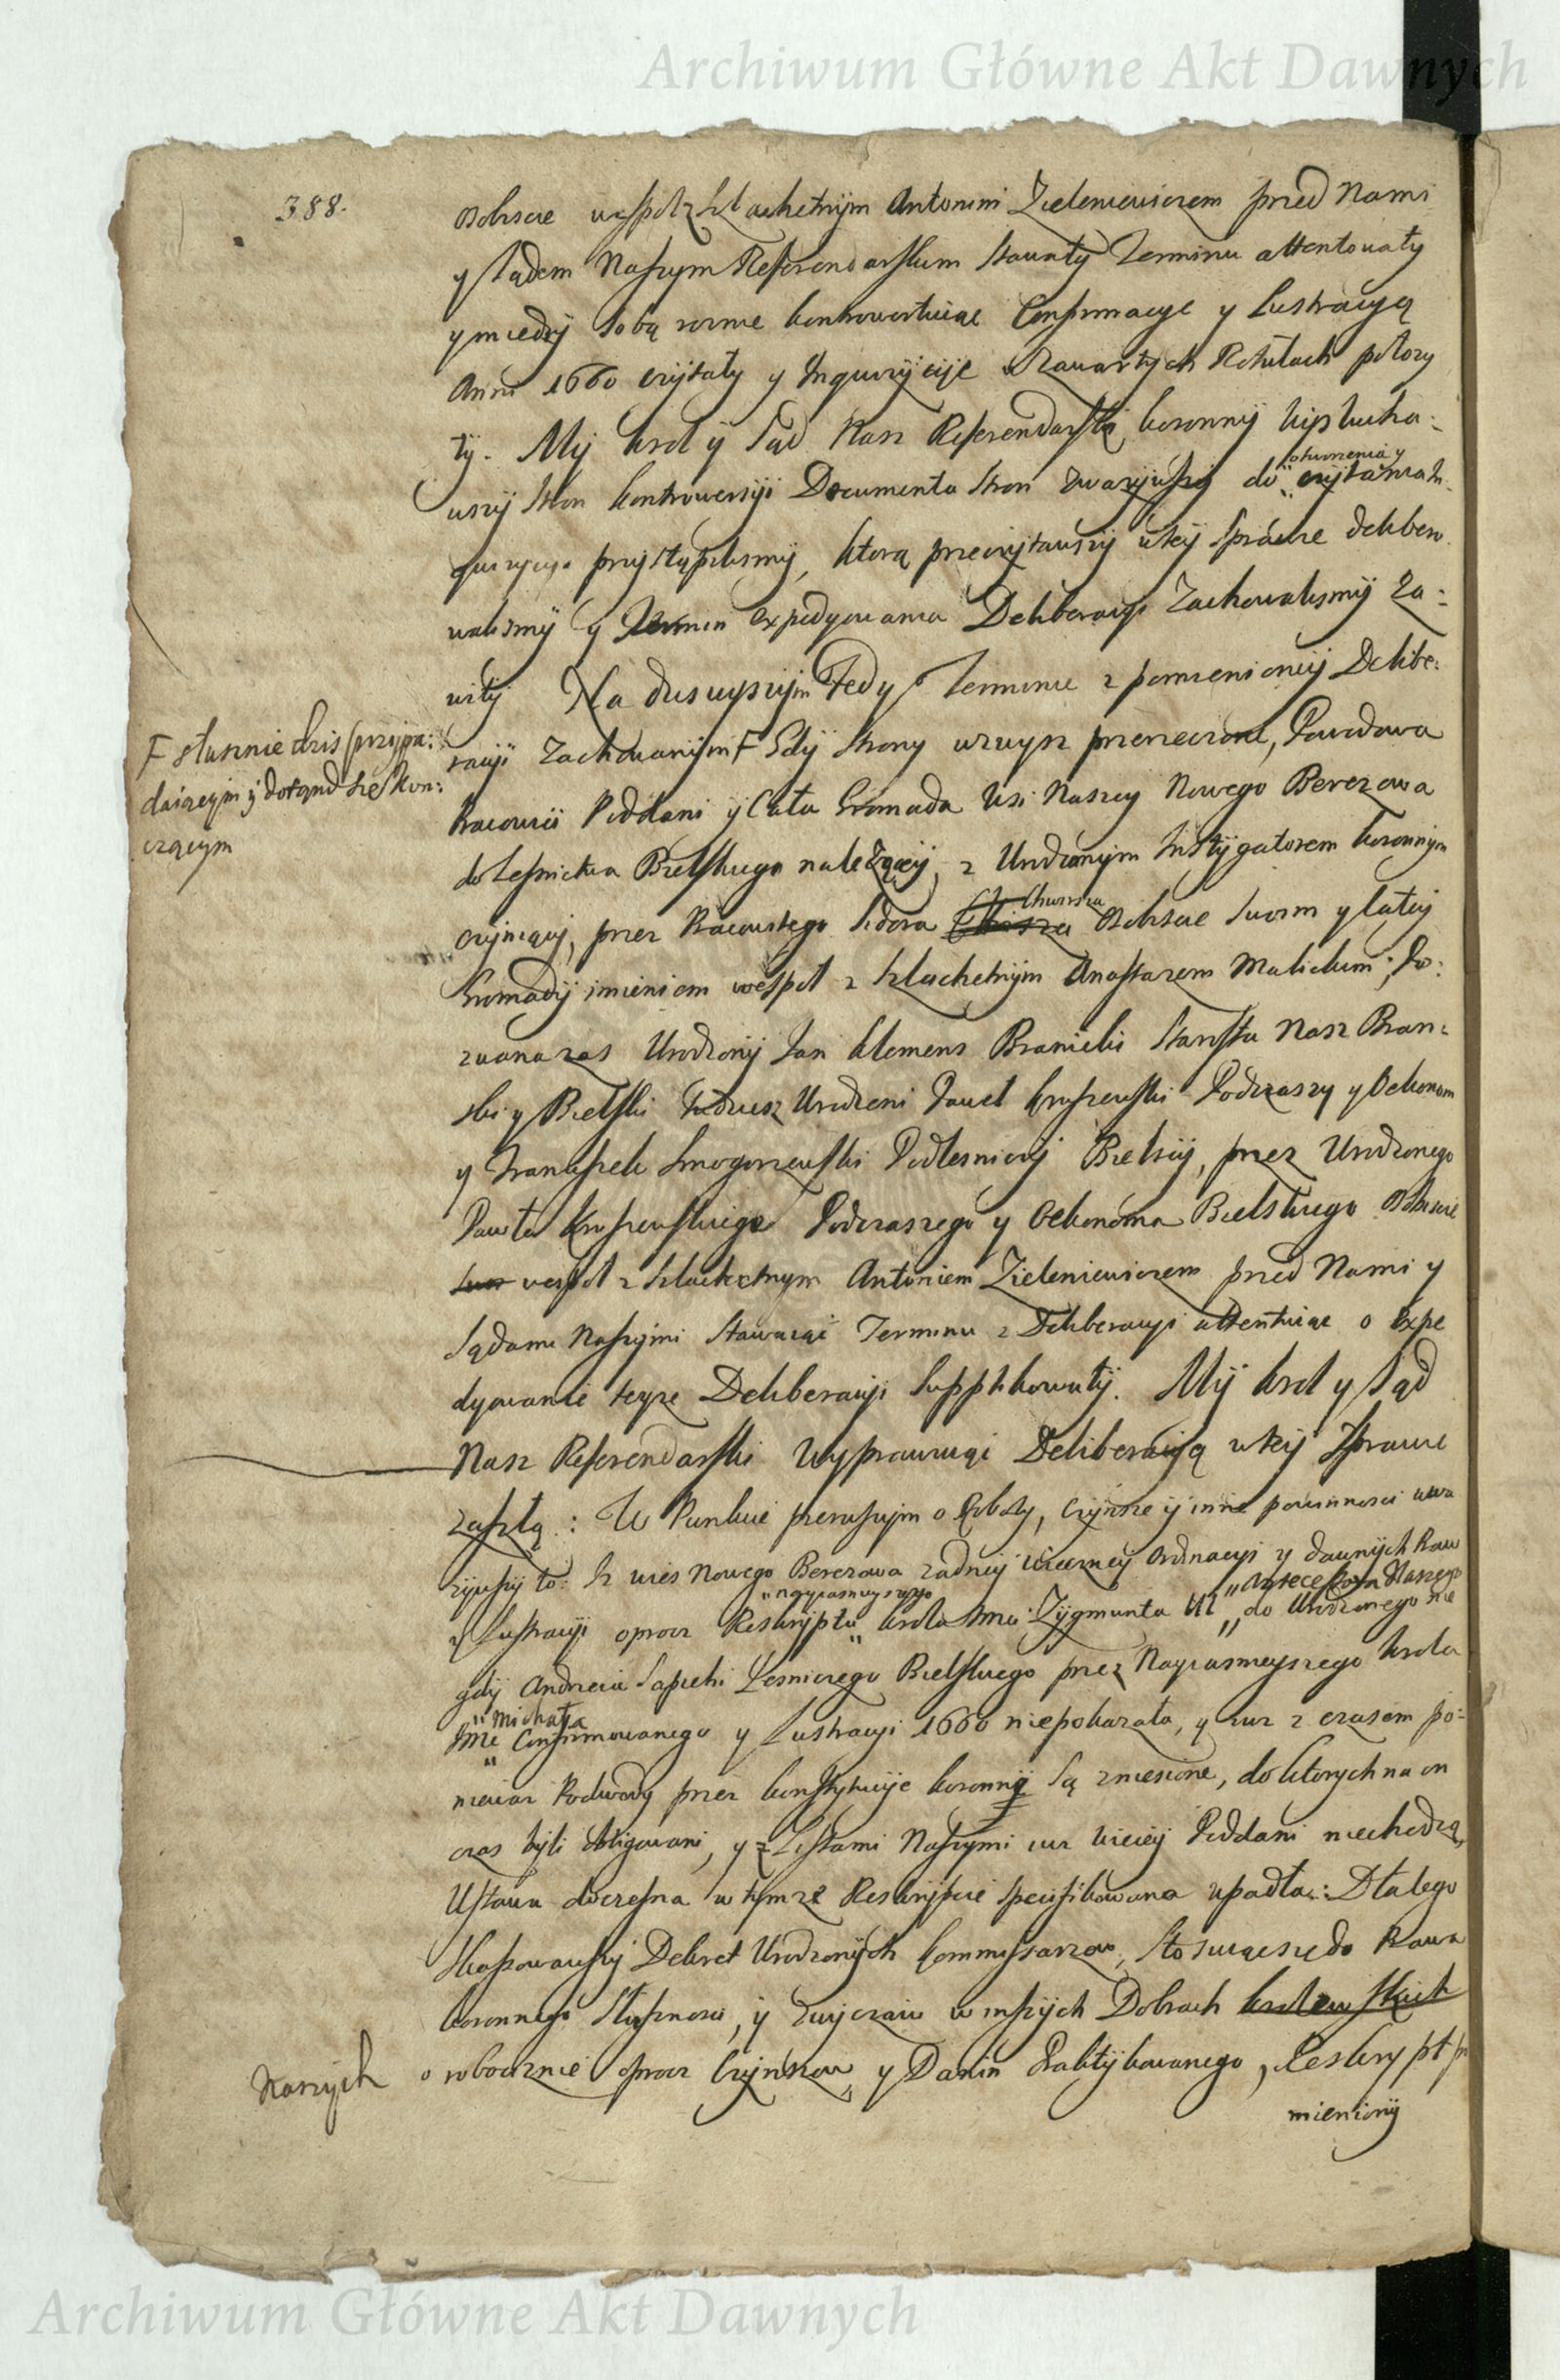 Archiwum Główne Akt Dawnych
388.
osobiscie wespoł z Szlachetnym Antonim Zieleniewiczem przed Nami
y Sądem Naszym Referendarskim stawały Terminu attentowały
y miedzy sobą rozne kontrowertuiąc Confirmacye y Lustracyą
Anni 1660 czytały y Inquizycye w zawartych Rotułach połozy
ły. My Krol y Sąd Nasz Referendarski koronny wysłucha-
wszy stron kontrowersyi Documenta stron zwazywszy do otworzenia y czytania In-
quizycyi przystąpilismy, ktorą przeczytawszy w tey sprawie delibero
walismy y Termin expedyowania Deliberacyi zachowalismy za-
wity Na dusieyszym Tedy Terminie z pomienioney Delibe-
racyi zachowanym F Gdy strony wzwyz przerzeczone, Powodowa
F słusznie dzis przypa-
daiącym y dotąnd się kon-
czącym
Pracowici Poddani y Cała Gromada Wsi Naszey Nowego Berezowa
do Lesnictwa Bielskiego nalezącey, z Urodzonym Instygatorem koronnym
czyniący, przez Pracowitego Sidora Chwisza osobiscie swoim y całey
Gromady imieniem wespoł z Szlachetnym Anastazem Malickim; Po-
zwana zas Urodzony Jan Klemens Branicki Starosta Nasz Bran-
ski y Bielski tudziesz Urodzeni Paweł Kruszewski Podczaszy y Oekonom
y Franciszek Smogorzewski Podlesniczy Bielscy, przez Urodzonego
Pawła Kruszewskiego Podczaszego y Oekonoma Bielskiego osobiscie
wespoł z Szlachetnym Antoniem Zieleniewiczem przed Nami y
Sądami Naszymi stawaiąc Terminu z Deliberacyi attentuiąc o expe
dyowanie teyze Deliberacyi supplikowały. My Krol y Sąd
Nasz Referendarski wyprawuiąc Deliberacyą w tey sprawie
zaszłą: W Punkcie pierwszym o Roboty, czynsze y inne powinnosci uwa
zywszy to: iz wies Nowego Berezowa zadney wieczney ordinacyi y dawnych Praw
y Lustracyi oprocz Reskryptu nayiasnieyszego krola Jmci Zygmunta III Antecessora Naszego do Urodzonego nie
gdy Andrzeia Sapiehi Lesniczego Bielskiego przez Nayiasnieyszego krola
Jmci Michała Confirmowanego y Lustracyi 1660 niepokazała, y iuz z czasem po-
niewaz Podwody przez konstytucye koronny są zniesione, do ktorych na on
czas byli obligowani, y z Listami Naszymi iuz wiecey Poddani niechodzą,
Ustawa doczesna w tymze Reskrypcie specifikowana upadła: Dla tego
skassowawszy Dekret Urodzonych Kommissarzow, stosuiąc się do Prawa
koronnego słusznosci, y zwyczaiu w inszych Dobrach krolewskich
Naszych o roboczznie oprocz Czynszow y Danin Praktykowanego, Reskrypt po
mieniony
Archiwum Główne Akt Dawnych